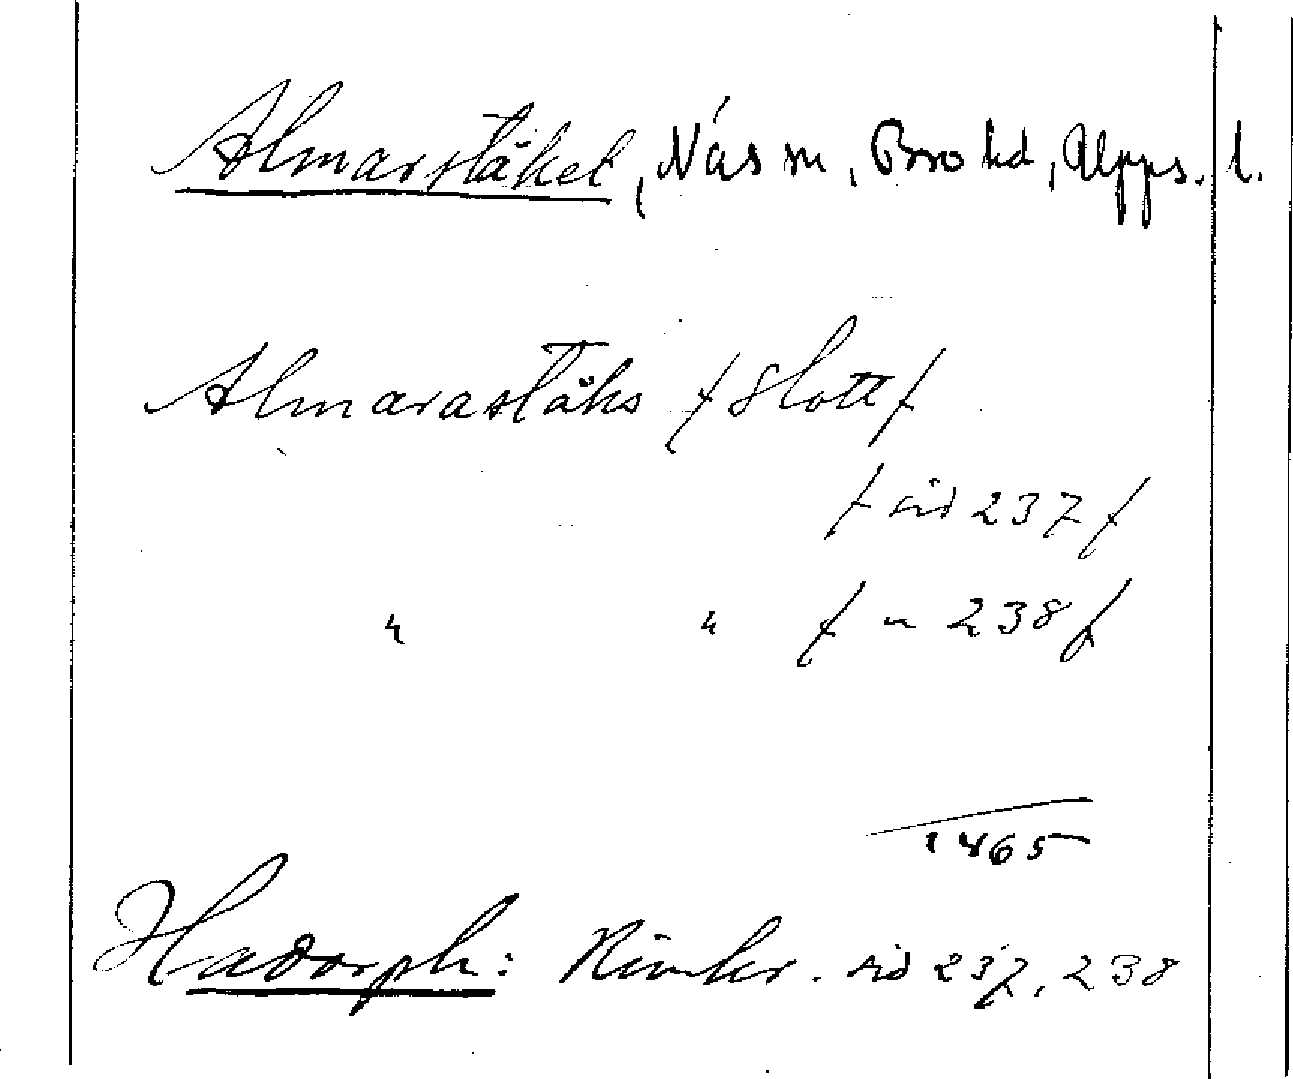 Almarstäket, Näs sn, Bro hd, Upps. l.
Almarastäks /Slott/
/sid 237/
" " / " 238/
1465
Hadorph: Rimkr. sid 237, 238